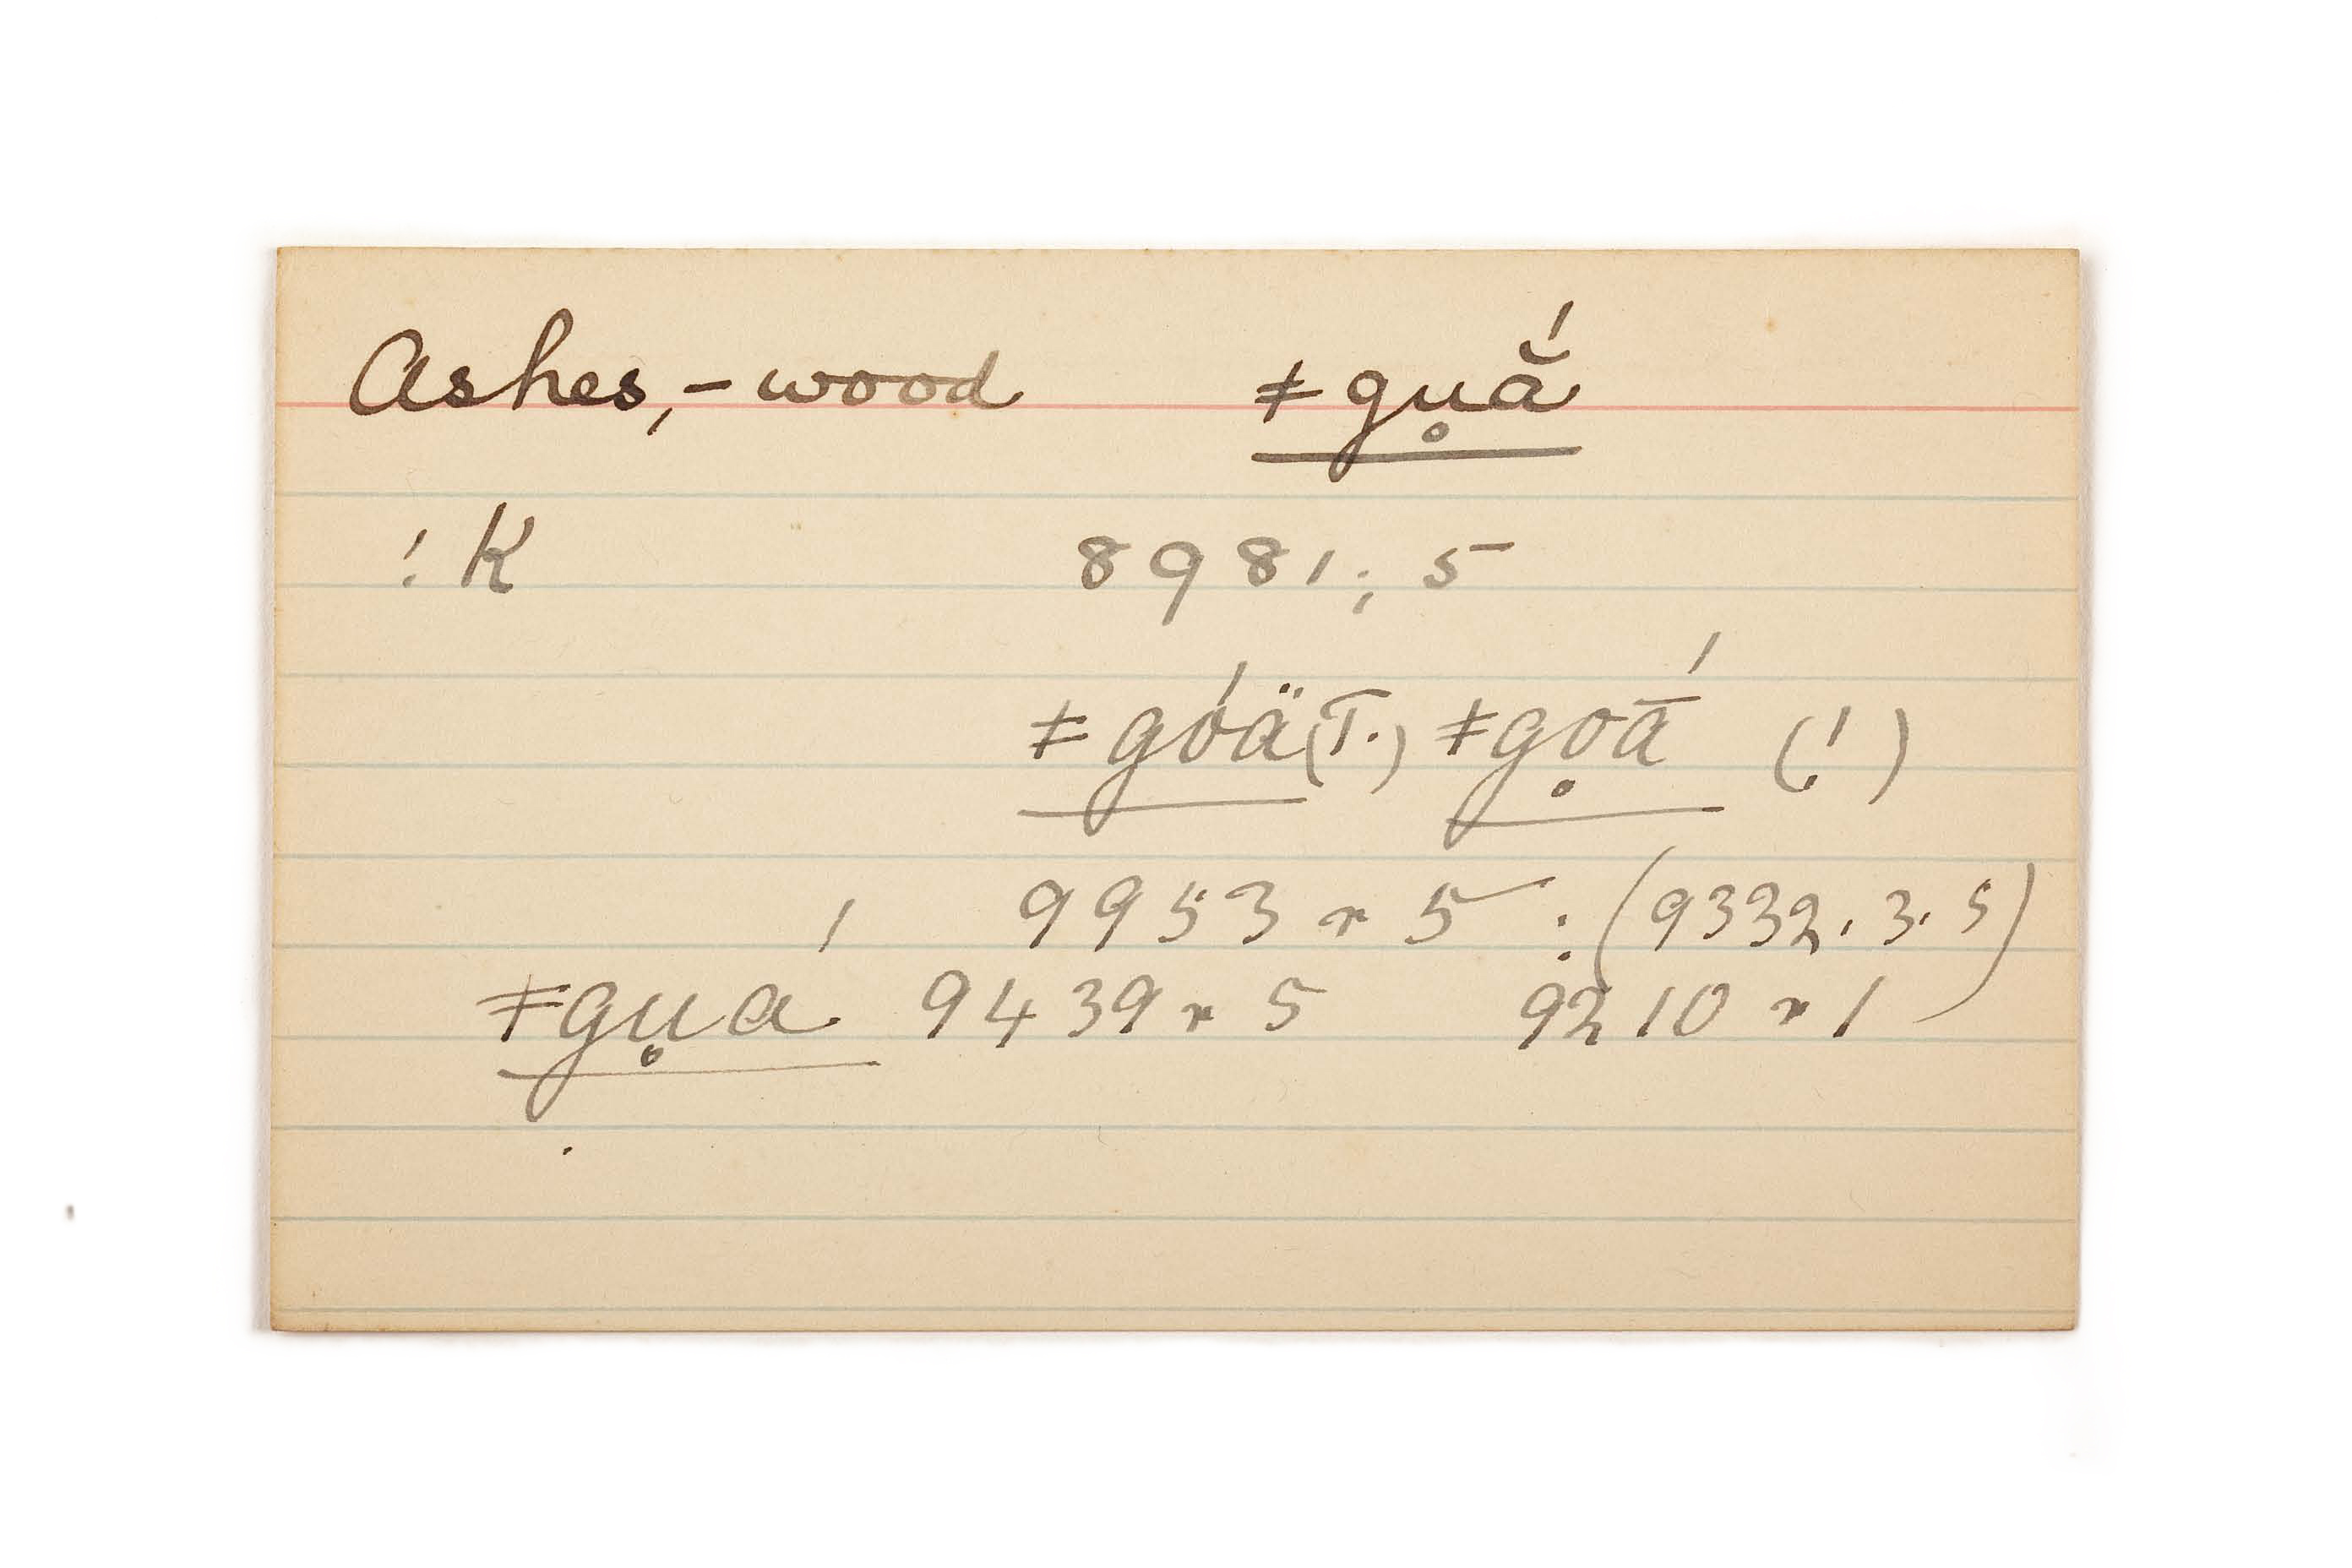 Ashes, - wood ǂgu̥ắ
!K 8981; 5
ǂgóä (T.) ǂgo̥ā́ (!)
9953 r 5 : (9332. 3. 5)
ǂgu̥á 9439 r 5 9210 r 1